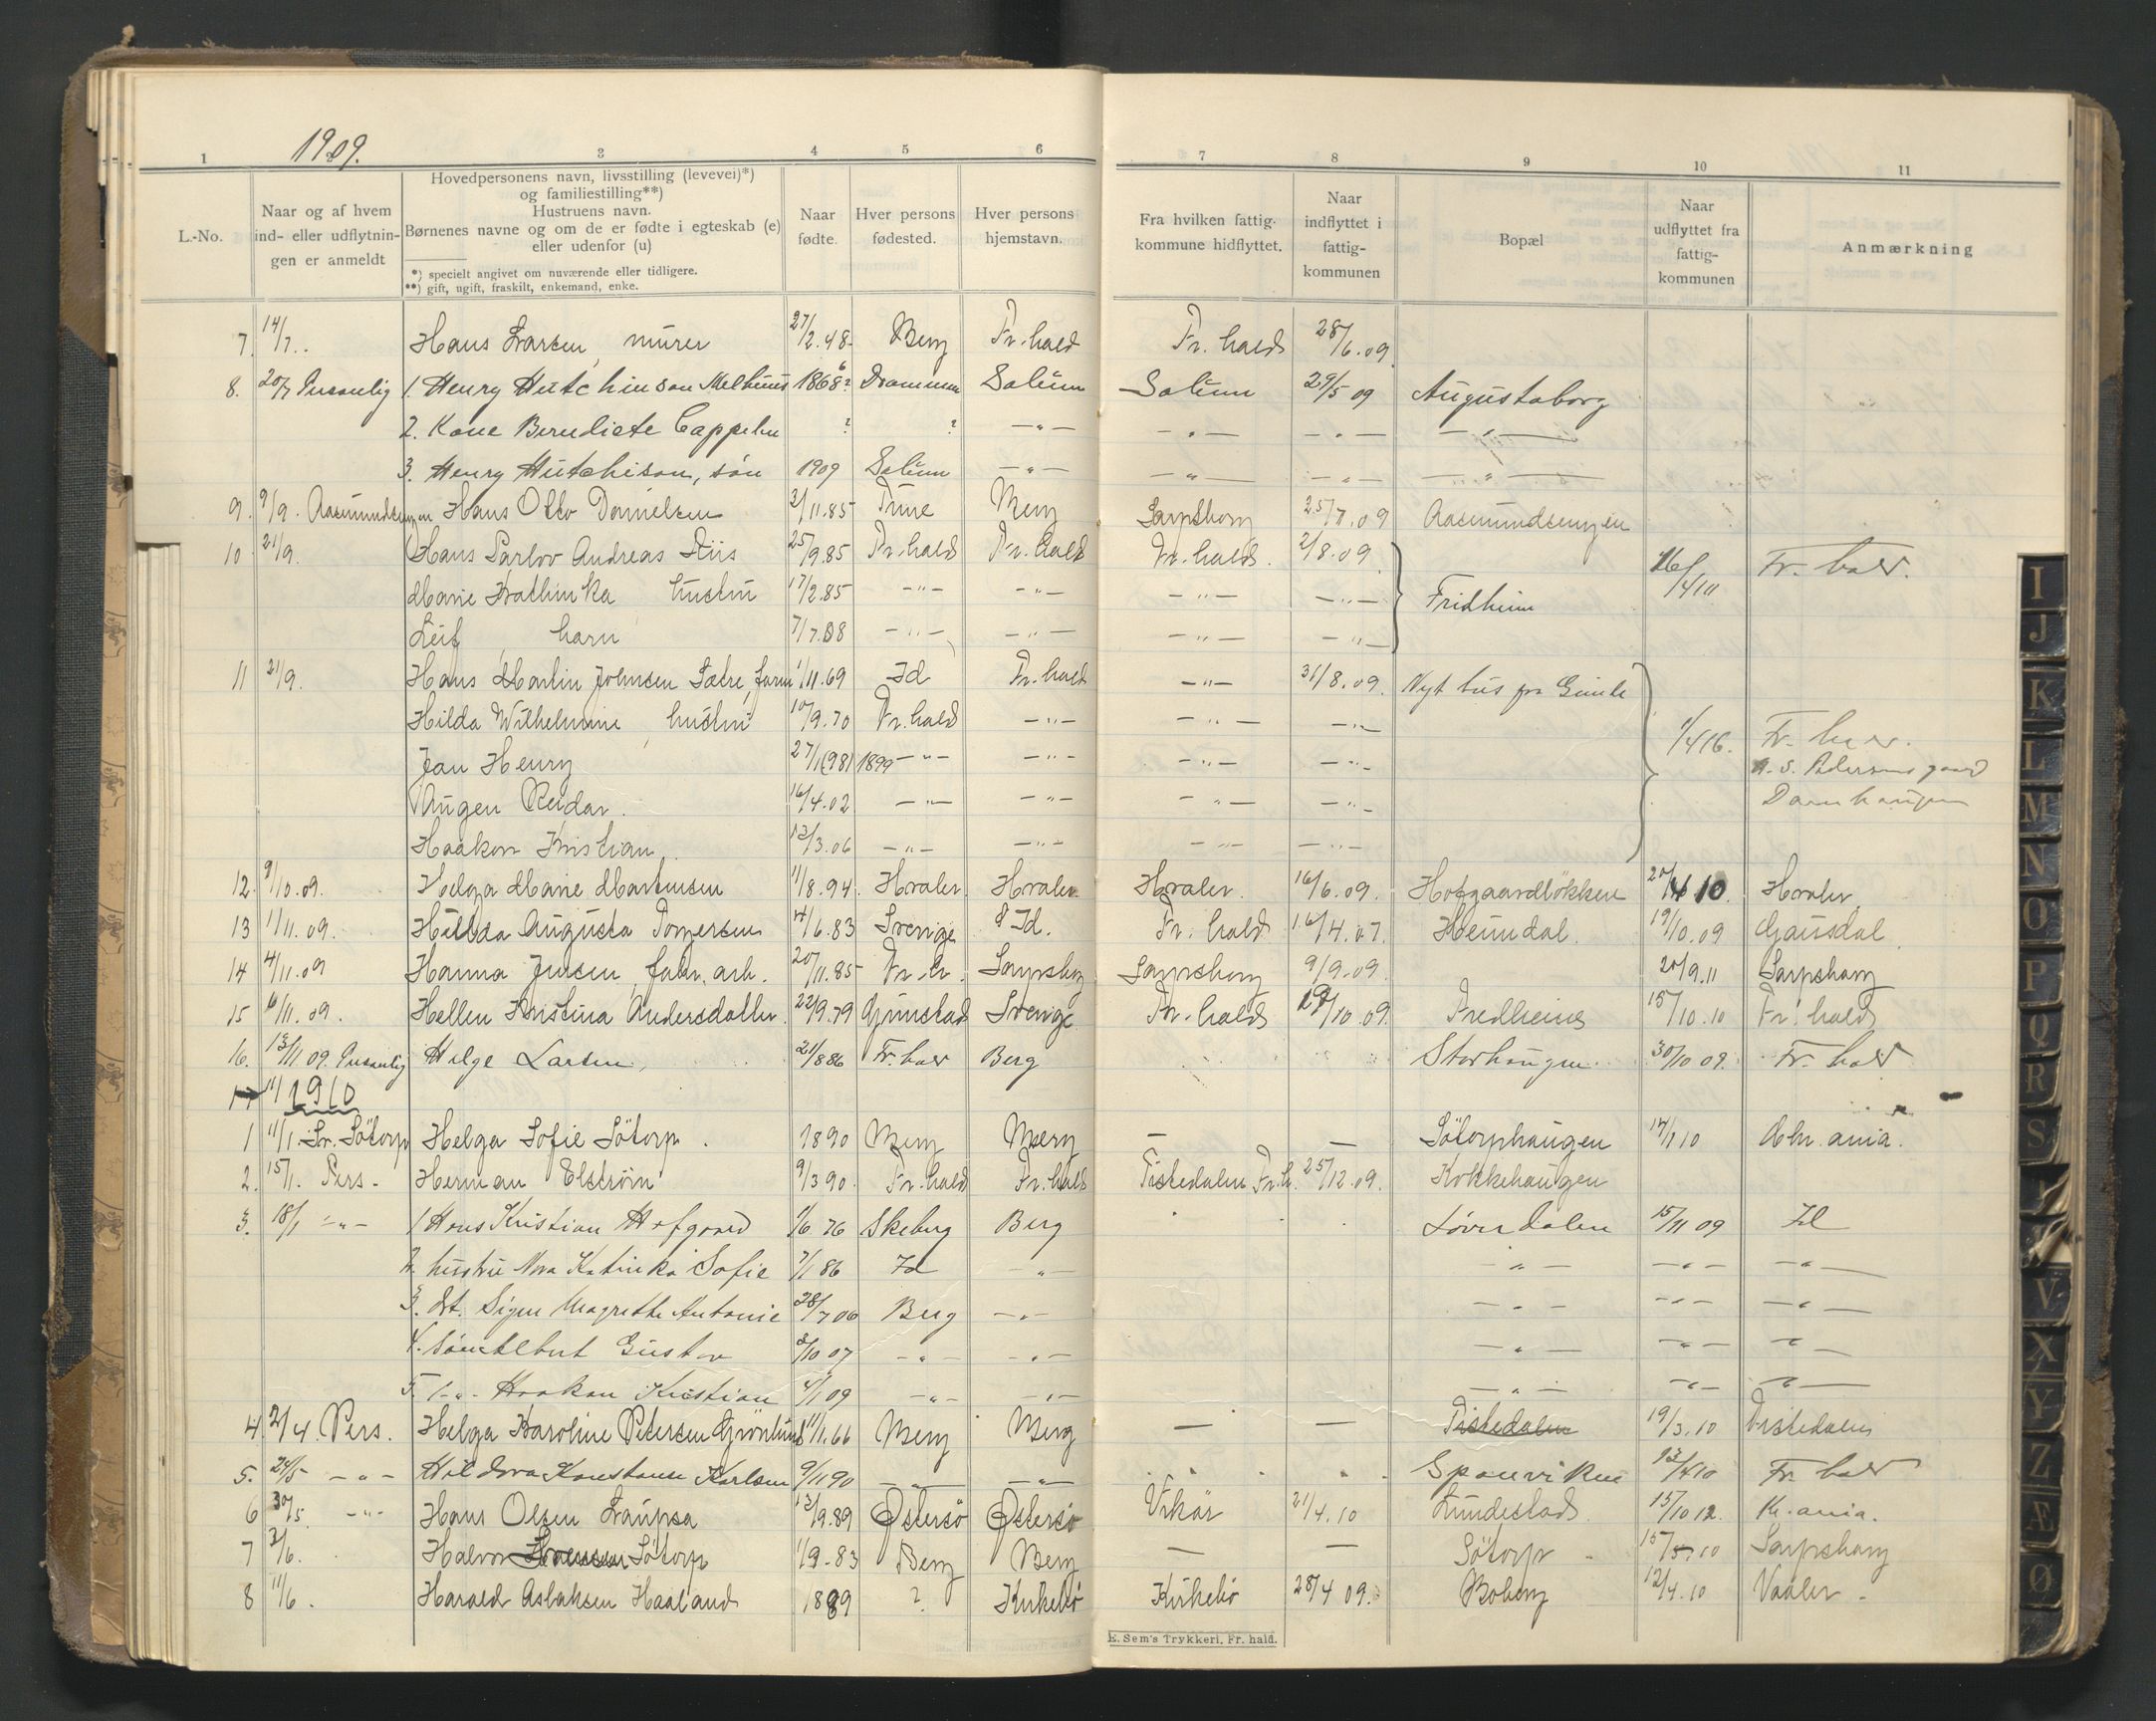 1909.
1 3 4 5 6 7 8 9 10 11
L.-No.
Naar og af hvem ind- eller udflytnin- gen er anmeldt
Hovedpersonens navn, livsstilling (levevei)*) og familiestilling**) Hustruens navn. Børnenes navne og om de er fødte i egteskab (e) eller udenfor (u)
*) specielt angivet om nuværende eller tidligere.
**) gift, ugift, fraskilt, enkemand, enke.
Naar fødte.
Hver persons fødested.
Hver persons hjemstavn.
Fra hvilken fattig- kommune hidflyttet.
Naar indflyttet i fattig- kommunen
Bopæl
Naar udflyttet fra fattig- kommunen
Anmærkning
7. 14/7. Hans Larsen, murer 27/2.48 Berg Fr.hald Fr.hald 28/6.09
8. 20/7 Personlig 1. Henry Hutchinson Melhuus 1868? Drammen Solum Solum 29/5 09 Augustaborg
2. Kone Benedicte Cappelen ? ? —"— —"— —"— —"—
3. Henry Hutchison, søn 1909 Solum —"— —"— —"— —"—
9. 9/9. Aasmundsengen Hans Otto Danielsen 3/11.85 Tune Berg Sarpsborg 25/7.09 Aasmundsengen
10 21/9. Hans Parlov Andreas Riis 25/9.85 Fr.hald Fr.hald Fr.hald. 2/8.09 Fridheim 26/4 11 Fr. hald.
Marie Kathinka hustru 17/2.85 —"— —"— —"— —"—
Leif, barn 7/7.08 —"— —"— —"— —"—
11 21/9. Hans Martin Johnsen Sætre, form 1/11.69 Id Fr.hald —"— 31/8.09. Nyt hus pr Gimle 1/4 16. Fr. hald.
Hilda Wilhelmine, hustru 10/9.70 Fr.hald —"— —"— —"—
Jon Henry 27/1(98) 1899 —"— —"— —"— —"—
Augen Reidar. 16/4.02 —"— —"— —"— —"—
Haakon Kristian 13/3.06 —"— —"— —"— —"—
12. 9/10.09. Helga Marie Martinsen 11/8.94. Hvaler Hvaler Hvaler. 16/6.09. Hofgaardløkken 20/4 10. Hvaler
13 1/11.09. Hilda Augusta Torgersen 14/6.83 Sverige Id. Fr. hald 16/4.07. Heimdal. 19/10.09 Gausdal.
14 4/11.09 Hanna Jensen, fabr. arb. 20/11.85 Fr.h. Sarpsborg Sarpsborg 9/9.09. 20/9.11 Sarpsborg
15 6/11.09. Hellen Kristina Andersdatter 22/9.79 Grimstad Sverige Fr.hald 19/10.09. Fredheim 15/10.10 Fr. hald
16. 13/11 09. Personlig Helge Larsen, 21/8 86 Fr.hald Berg Storhaugen 30/10 09. Fr. hald
1910
1 11/1. Sr. Søtorp Helga Sofie Søtorp. 1890 Berg Berg — — Søtorphaugen 14/1 10 Chr.ania.
2. 15/1. Pers. Herman Elstrøm 9/3 90. Fr.hald Fr.hald Tistedalen Fr.h. 25/12.09. Kokkehaugen
3. 18/1 —"— 1 Hans Kristian Hofgaard 1/6 76 Skeberg Berg Løverdalen 15/11 09 Id
2. hustru Nora Katinka Sofie 7/1 86 Id —"— —"— —"— —"—
3. dt. Signe Magrethe Antonie 28/7 06 Berg —"— —"— —"— —"—
4. søn Albert Gustav 8/10 07 —"— —"— —"— —"— —"—
5. —"— Haakon Kristian 4/1 09 —"— —"— —"— —"— —"—
4. 2/4. Pers. Helga Karoline Petersen Grønlund 11/1.66 Berg Berg — — Tistedalen 19/3.10 Tistedalen
5. 24/5 —"— Hildora Konstanse Karlsen 9/11 90 —"— —"— Sponviken 23/4 10 Fr. hald
6 30/5. —"— Hans Olsen Laupsa 13/9.89 Østersö Østersö Vikør 21/4.10 Lundestad. 15/10 12. Kr.ania.
7 2/6. Halvor Søtorp 1/9.83 Berg Berg — — Søtorp 15/5 10 Sarpsborg
8 11/6. Harald Aslaksen Haaland 1889 ? Kirkebø Kirkebø 28/4 09. Boberg 12/4.10 Vaaler.
K. Sem's Trykkeri, Fr. hald.
I
J
K
L
M
N
O
P
Q
R
S
V
X
Y
Z
Æ
Ø